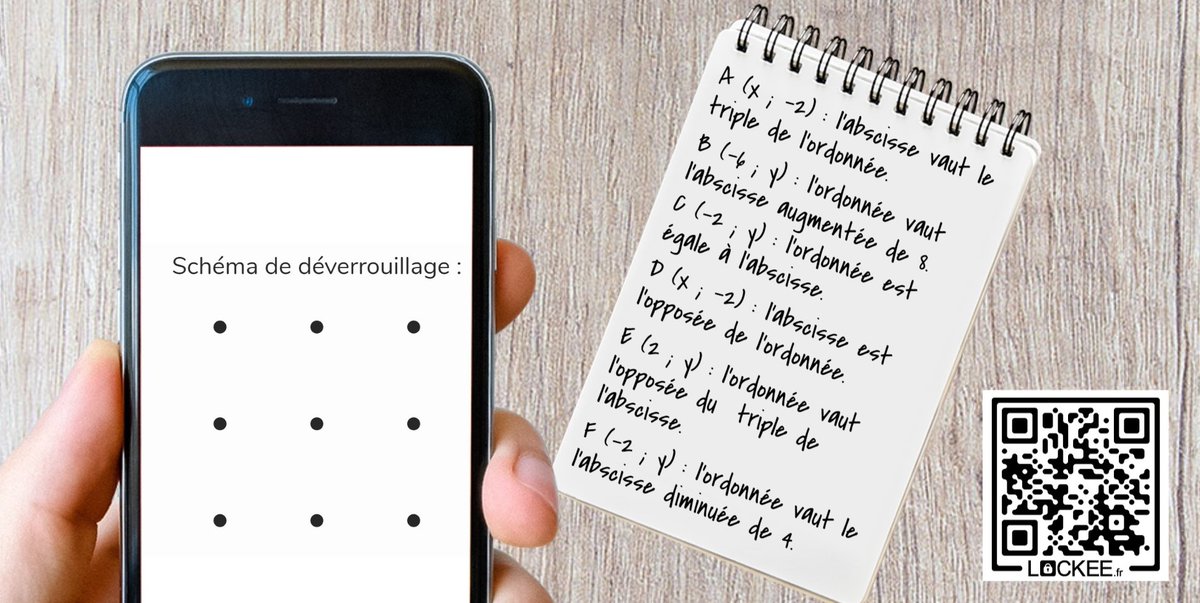 Schéma de déverrouillage :
A (x ; -2) : l'abscisse vaut le
triple de l'ordonnée.
B (-6 ; y) : l'ordonnée vaut
l'abscisse augmentée de 8.
C (-2 ; y) : l'ordonnée est
égale à l'abscisse.
D (x ; -2) : l'abscisse est
l'opposée de l'ordonnée.
E (2 ; y) : l'ordonnée vaut
l'opposée du triple de
l'abscisse.
F (-2 ; y) : l'ordonnée vaut le
l'abscisse diminuée de 4.
LOCKEE.fr